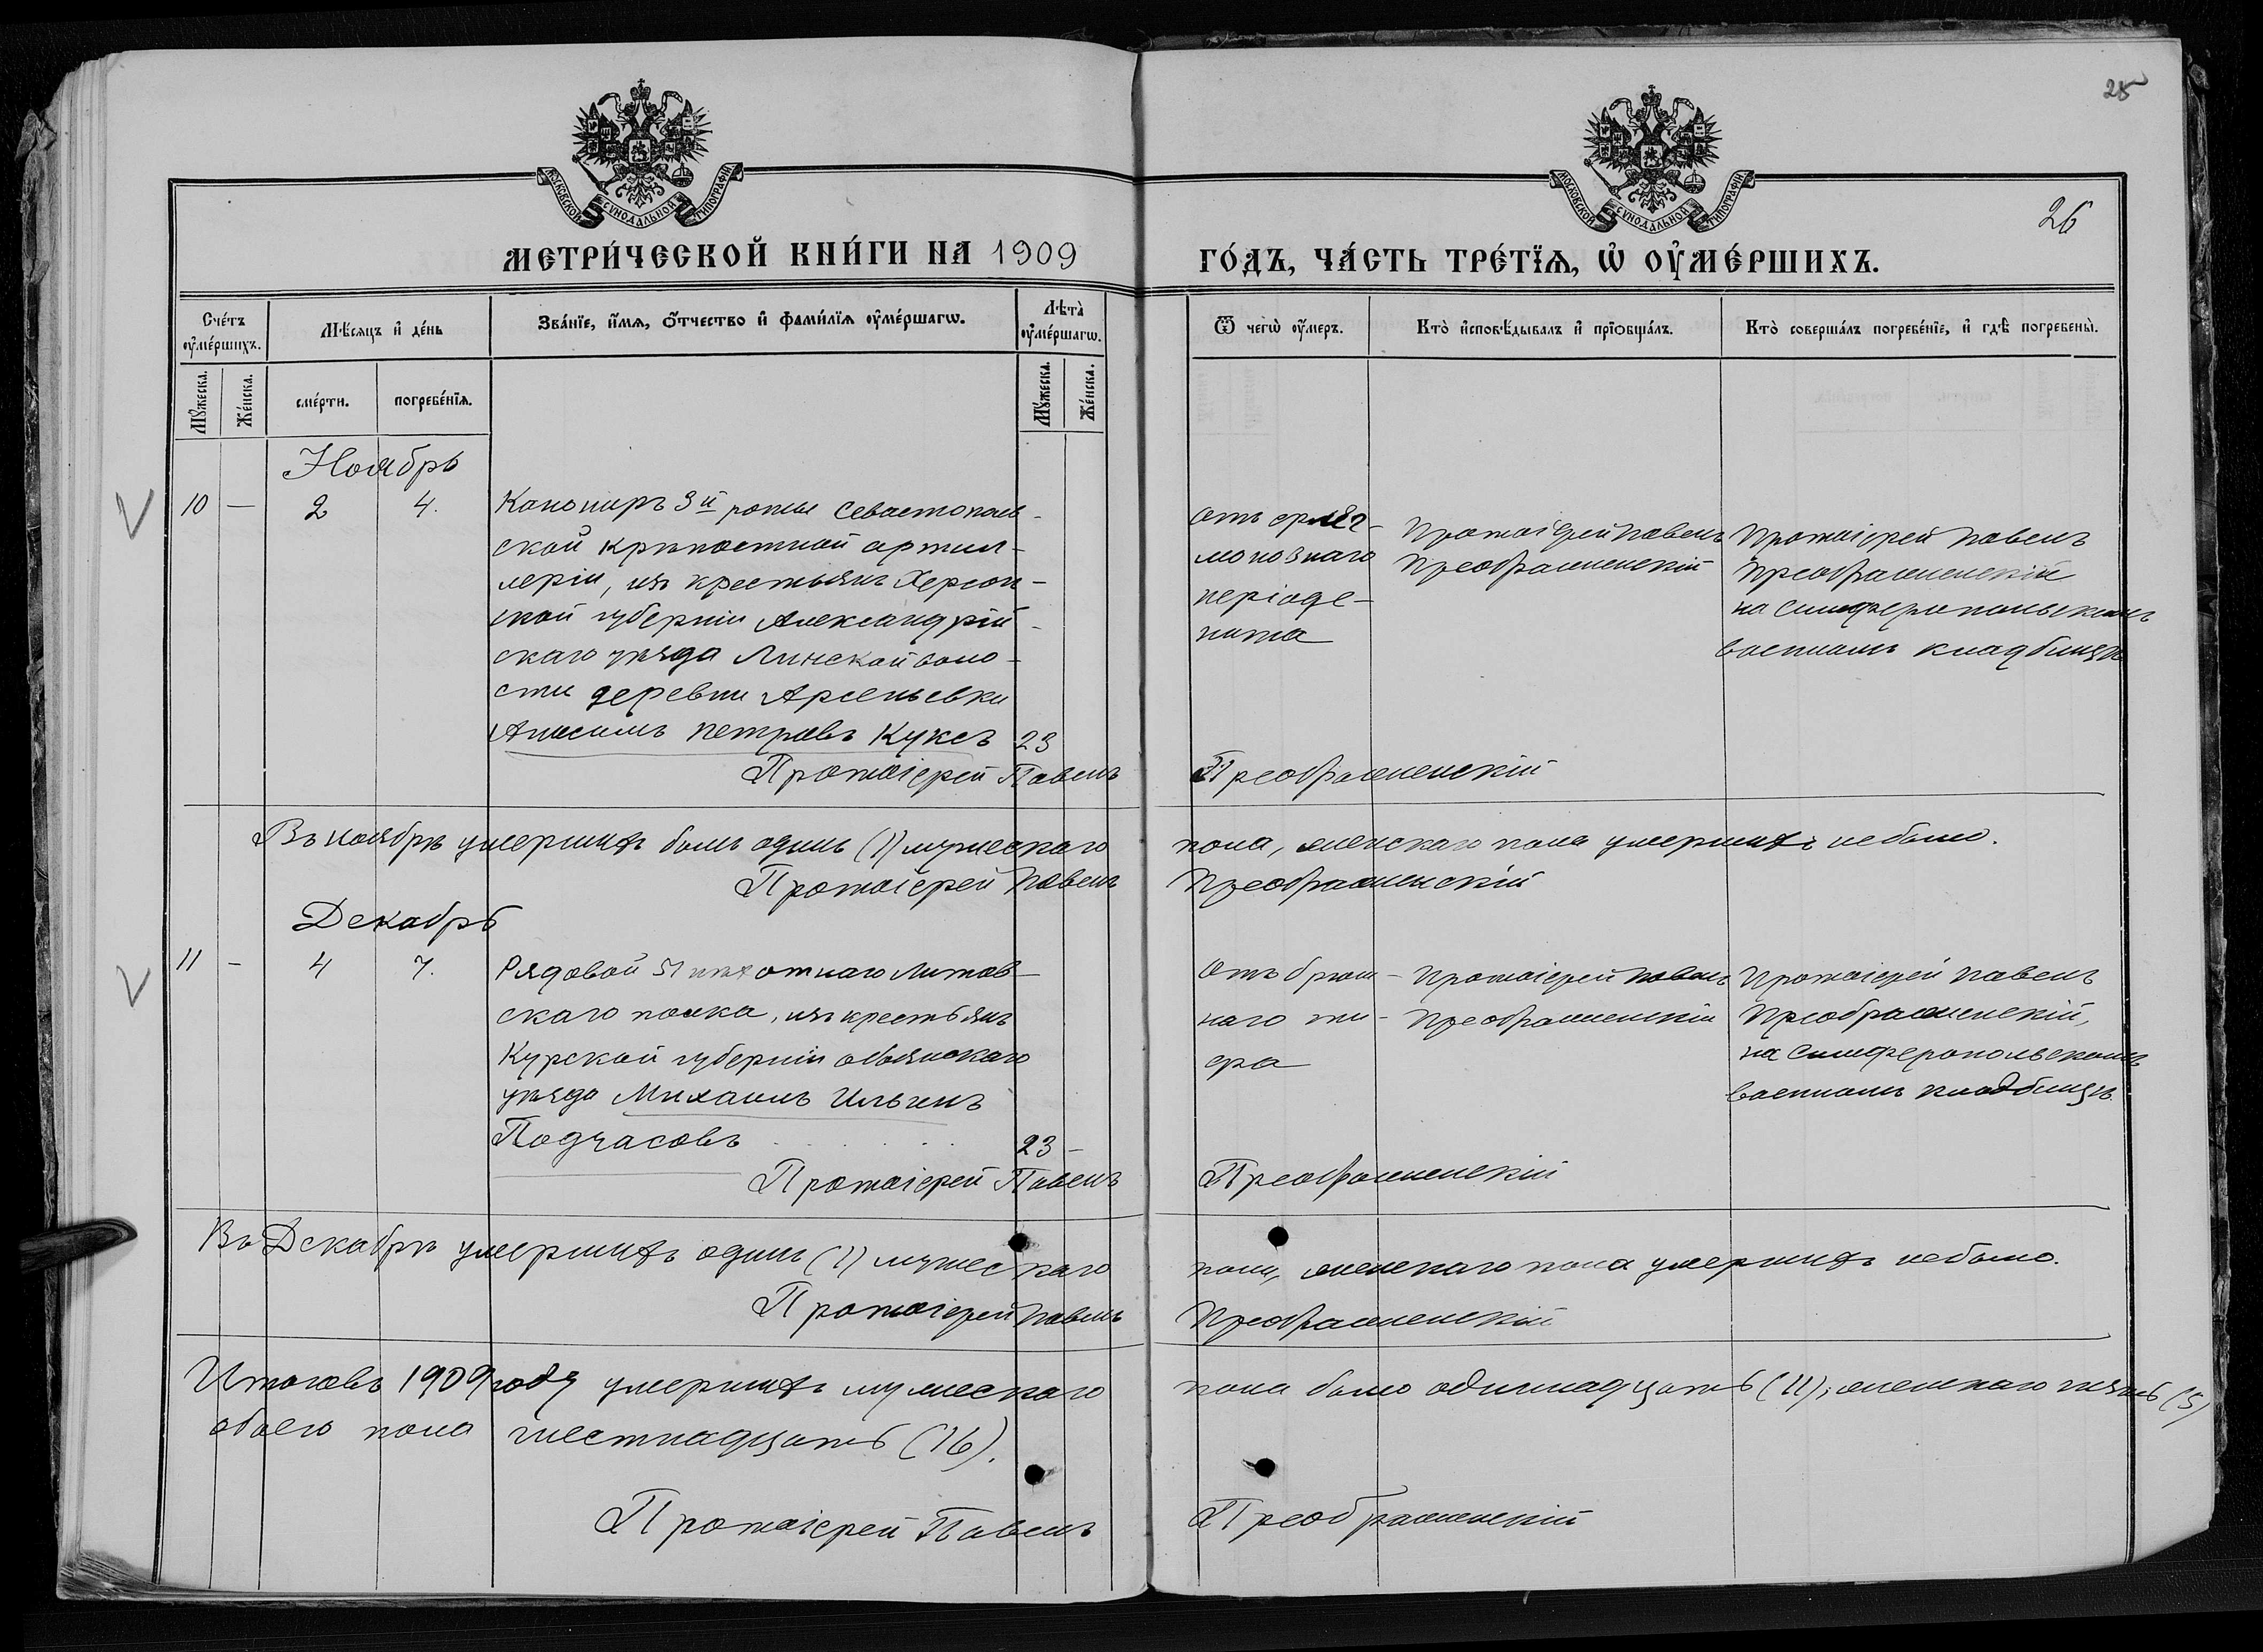 25
26
МОСКОВСКОЙ СѴНОДАЛЬНОЙ ТИПОГРАФІИ
МОСКОВСКОЙ СѴНОДАЛЬНОЙ ТИПОГРАФІИ
МЕТРИ́ЧЕСКОЙ КНИ́ГИ НА 1909
ГО́ДЪ, ЧА́СТЬ ТРЕ́ТЇѦ, Ѡ҆ ОУ҆МЕ́РШИХЪ.
Сче́тъ оу҆ме́ршихъ.
Мѣ́сяцъ и҆ де́нь
Зва́нїе, и҆́мѧ, ѻ҆́тчество и҆ фами́лїѧ оу҆ме́ршагѡ.
Лѣта̀ оу҆ме́ршагѡ.
Ѿ чегѡ̀ оу҆́меръ.
Кто̀ и҆сповѣ́дывалъ и҆ прїѻбща́лъ.
Кто̀ соверша́лъ погребе́нїе, и҆ гдѣ̀ погребены̀.
Мꙋ́жеска.
Же́нска.
сме́рти.
погребе́нїѧ.
Мꙋ́жеска.
Же́нска.
Ноябрь
10 — 2 4.
Канониръ 3й роты Севастополь-
ской крѣпостной артил-
леріи, изъ крестьянъ Херсон-
ской губерніи Александрій-
скаго уѣзда Линской воло-
сти деревни Арсеньевки
Анисимъ Петровъ Куксъ 23
Отъ
Протоіерей Павелъ
Преображенскій
Протоіерей Павелъ
Преображенскій
на Симферопольскомъ
военномъ кладбищѣ
Протоіерей Павелъ Преображенскій
Въ ноябрѣ умершихъ былъ одинъ (1) мужескаго пола, женскаго пола умершихъ не было.
Протоіерей Павелъ Преображенскій
Декабрь
11 - 4 7.
Рядовой 51 пѣхотнаго Литов-
скаго полка, изъ крестьянъ
Курской губерніи Обоянскаго
уѣзда Михаилъ Ильинъ
Подчасовъ 23 -
Отъ брюш-
наго ти-
фа
Протоіерей Павелъ
Преображенскій
Протоіерей Павелъ
Преображенскій,
на Симферопольскомъ
военномъ кладбищѣ.
Протоіерей Павелъ Преображенскій
Въ Декабрѣ умершихъ одинъ (1) мужескаго пола, женскаго пола умершихъ не было.
Протоіерей Павелъ Преображенскій
Итого въ 1909 году умершихъ мужескаго пола было одиннадцать (11), женскаго пять (5)
обоего пола шестнадцать (16).
Протоіерей Павелъ Преображенскій